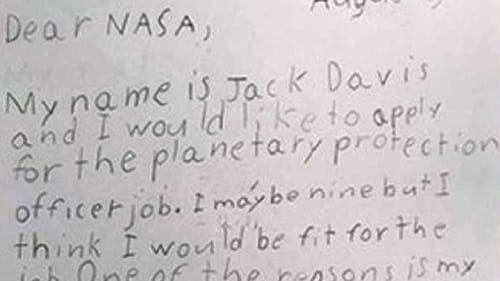 Dear NASA,
My name is Jack Davis
and I would like to apply
for the planetary protection
officer job. I maybe nine but I
think I would be fit for the
job One of the reasons is my